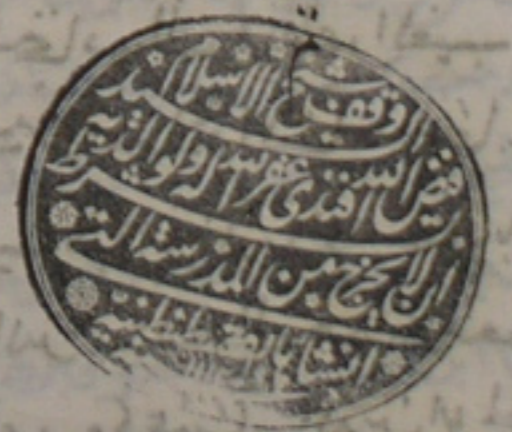 وقف شيخ الاسلام السيد
فيض الله افندى غفر الله له ولوالديه بشرط
ان لا يخرج من المدرسة التى
انشاها بقسطنطينية